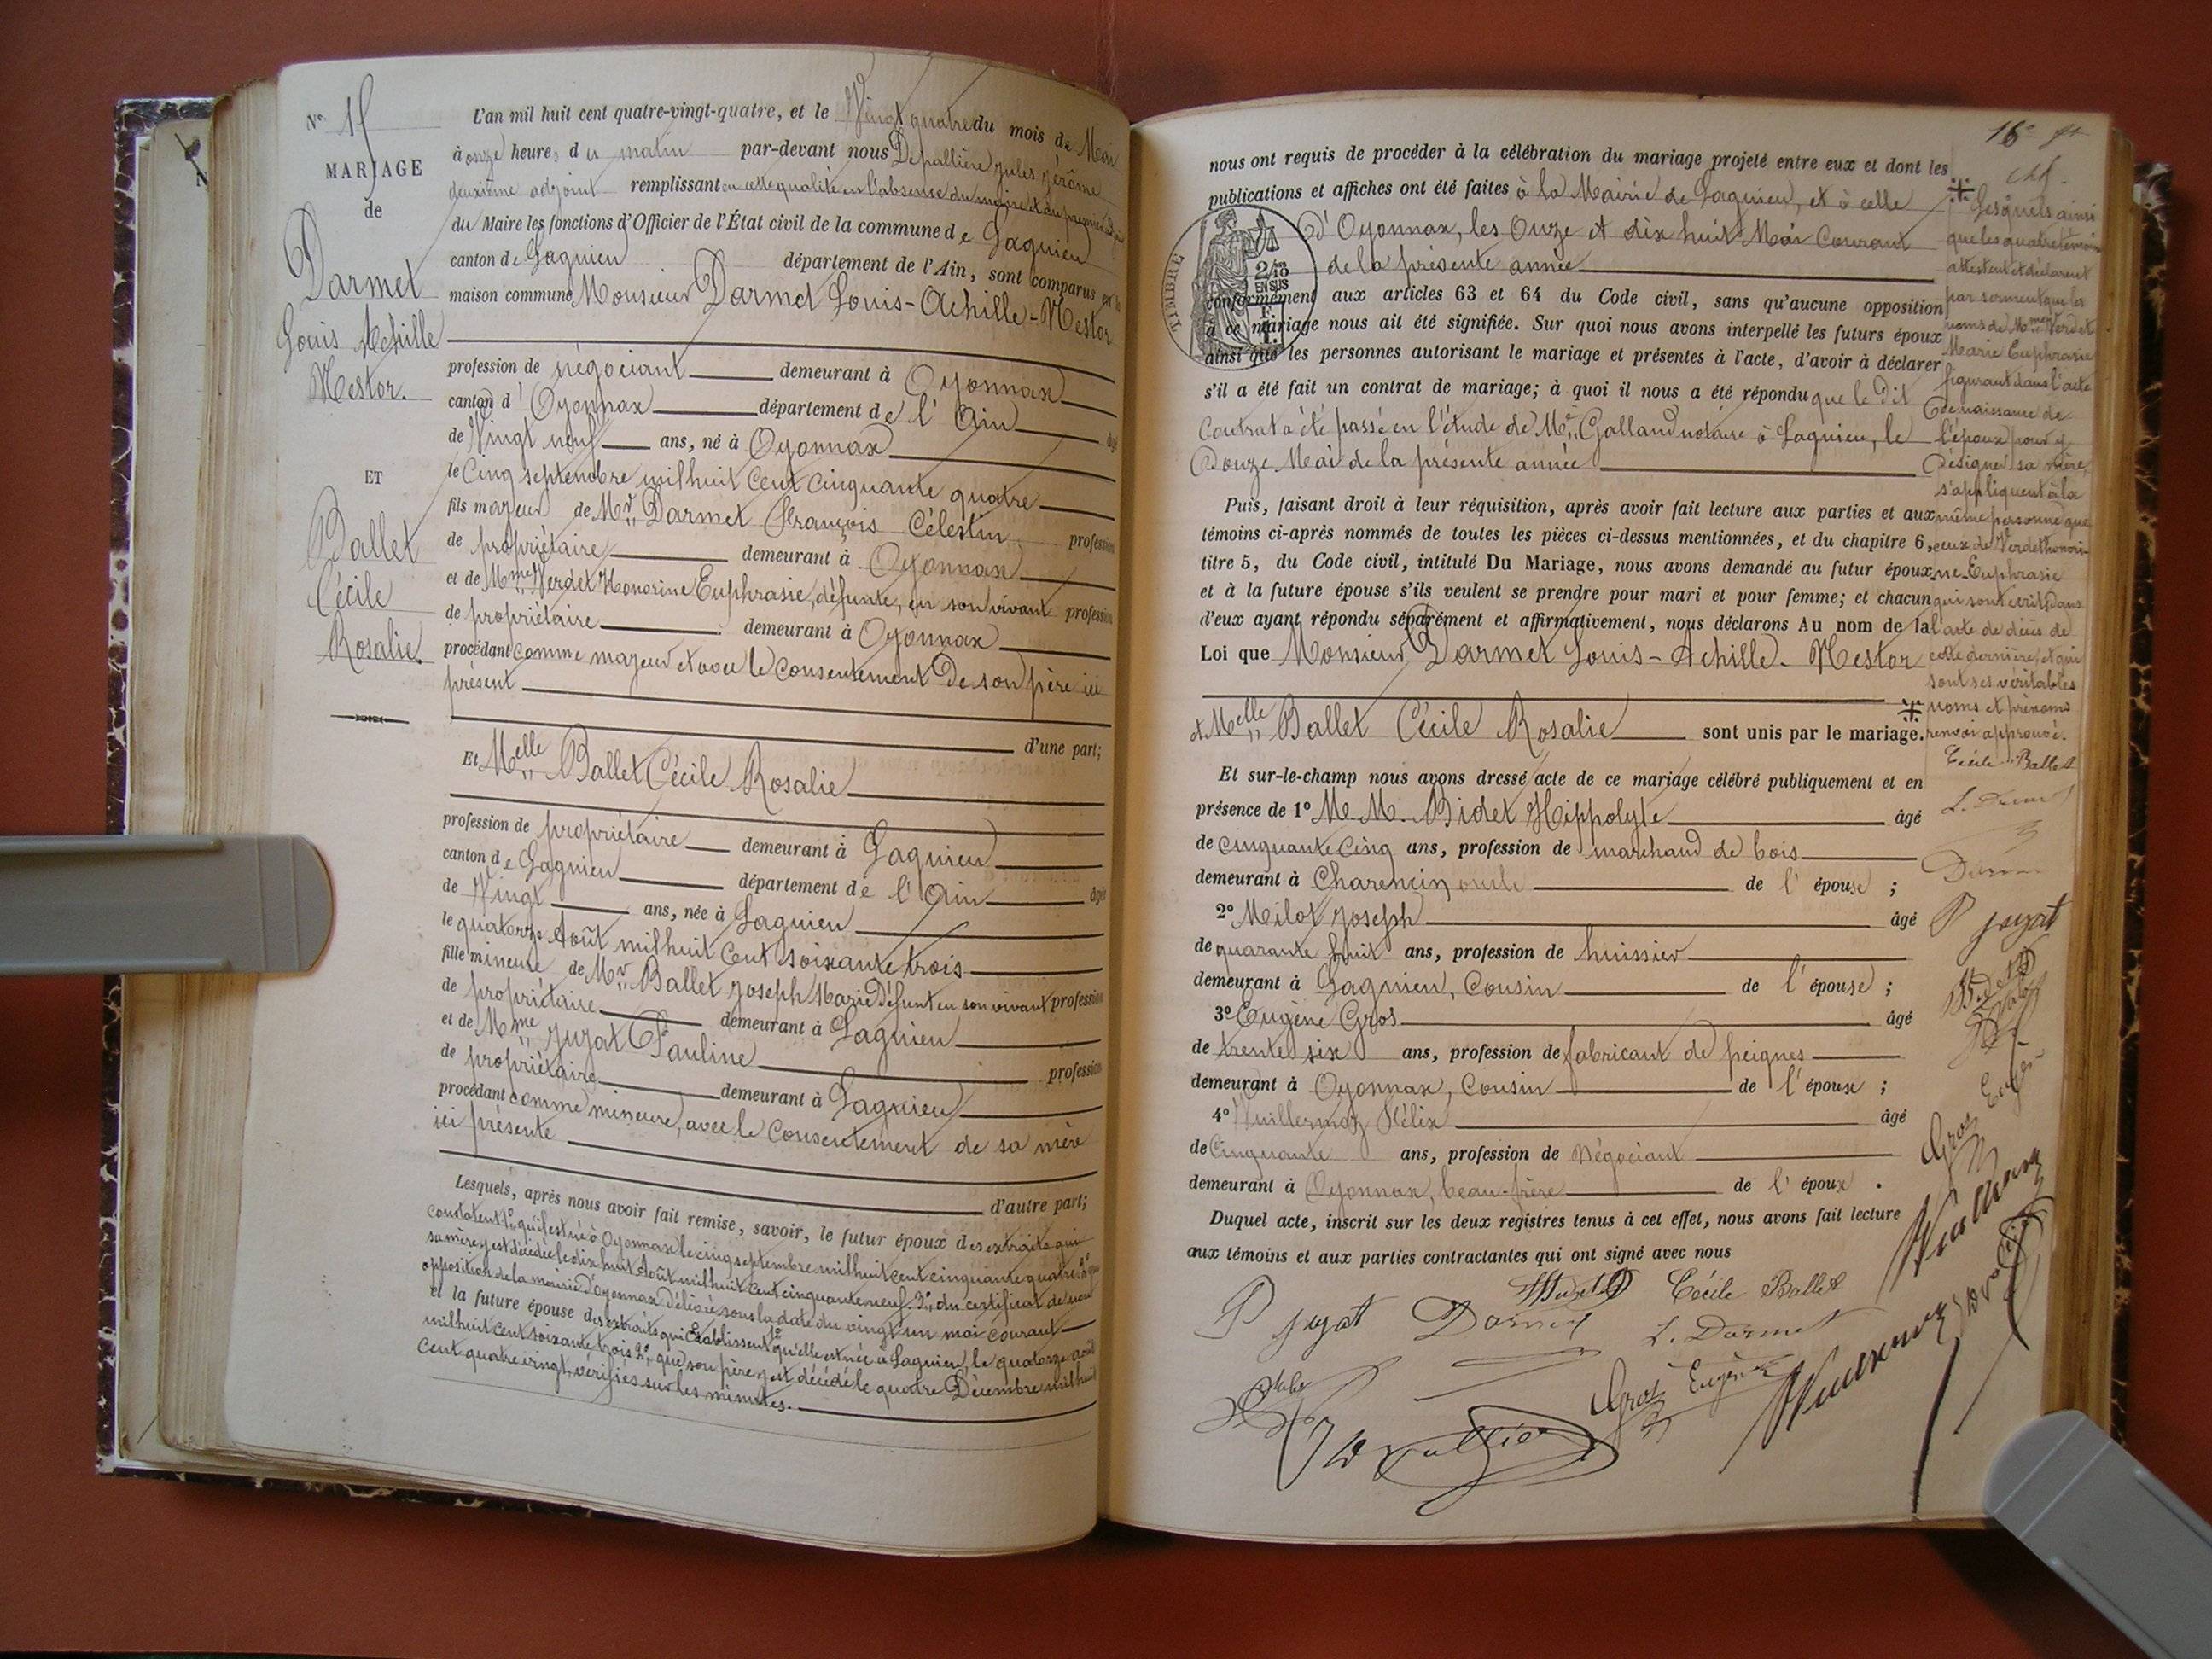 Nº 15
MARIAGE
de
Darmet
Louis Achille
Nestor.
ET
Ballet
Cécile
Rosalie.
L'an mil huit cent quatre-vingt-quatre, et le Vingt quatre du mois de Mai
à onze heures du matin par-devant nous Depallière Jules Jérôme
deuxième adjoint remplissant en cette qualité en l'absence du maire et du premier
du Maire les fonctions d'Officier de l'État civil de la commune de Lagnieu
canton de Lagnieu département de l'Ain, sont comparus en la
maison commune Monsieur Darmet Louis-Achille-Nestor
profession de négociant demeurant à Oyonnax
canton d'Oyonnax département de l'Ain âgé
de Vingt neuf ans, né à Oyonnax
le Cinq septembre mil huit Cent Cinquante quatre
fils majeur de Mr Darmet François Célestin profession
de propriétaire demeurant à Oyonnax
et de Mme Verdet Honorine Euphrasie, défunte, en son vivant profession
de propriétaire demeurant à Oyonnax
procédant comme majeur et avec le Consentement de son père ici
présent
d'une part;
Et Melle Ballet Cécile Rosalie
profession de propriétaire demeurant à Lagnieu
canton de Lagnieu département de l'Ain âgée
de Vingt ans, née à Lagnieu
le quatorze Août mil huit Cent soixante trois
fille mineure de Mr Ballet Joseph Marie Défunt en son vivant profession
de propriétaire demeurant à Lagnieu
et de Mme Juyat Pauline profession
de propriétaire demeurant à Lagnieu
procédant comme mineure, avec le Consentement de sa mère
ici présente
d'autre part;
Lesquels, après nous avoir fait remise, savoir, le futur époux des extraits qui
constatent 1º qu'il est né à Oyonnax le cinq septembre mil huit cent cinquante quatre 2º que
sa mère y est décédée le dix huit Août mil huit Cent cinquante neuf. 3º du certificat de non
opposition de la mairie d'Oyonnax délivré sous la date du vingt un mai courant
et la future épouse des extraits qui établissent 1º qu'elle est née à Lagnieu, le quatorze août
mil huit cent soixante trois 2º que son père y est décédé le quatre Décembre mil huit
cent quatre vingt, vérifiés sur les minutes.
16e ft
nous ont requis de procéder à la célébration du mariage projeté entre eux et dont les
publications et affiches ont été faites à la Mairie de Lagnieu, et à celle
d'Oyonnax, les Onze et dix huit Mai Courant
de la présente année
TIMBRE
2/10
EN SUS
conformément aux articles 63 et 64 du Code civil, sans qu'aucune opposition
à ce mariage nous ait été signifiée. Sur quoi nous avons interpellé les futurs époux
ainsi que les personnes autorisant le mariage et présentes à l'acte, d'avoir à déclarer
s'il a été fait un contrat de mariage; à quoi il nous a été répondu que le dit
Contrat a été passé en l'étude de Me Galland notaire à Lagnieu, le
Douze Mai de la présente année
Puis, faisant droit à leur réquisition, après avoir fait lecture aux parties et aux
témoins ci-après nommés de toutes les pièces ci-dessus mentionnées, et du chapitre 6,
titre 5, du Code civil, intitulé Du Mariage, nous avons demandé au futur époux
et à la future épouse s'ils veulent se prendre pour mari et pour femme; et chacun
d'eux ayant répondu séparément et affirmativement, nous déclarons Au nom de la
Loi que Monsieur Darmet Louis-Achille-Nestor
et Melle Ballet Cécile Rosalie sont unis par le mariage.
Et sur-le-champ nous avons dressé acte de ce mariage célébré publiquement et en
présence de 1º M.M. Bidet Hippolyte âgé
de cinquante Cinq ans, profession de marchand de bois
demeurant à Charencin, oncle de l'épouse ;
2º Milot Joseph âgé
de quarante huit ans, profession de huissier
demeurant à Lagnieu, Cousin de l'épouse ;
3º Eugène Gros âgé
de trente six ans, profession de fabricant de peignes
demeurant à Oyonnax, Cousin de l'épouse ;
4º Vuillermoz Félix âgé
de Cinquante ans, profession de Négociant
demeurant à Oyonnax, beau-frère de l'époux .
Duquel acte, inscrit sur les deux registres tenus à cet effet, nous avons fait lecture
aux témoins et aux parties contractantes qui ont signé avec nous
P Juyat Darmet Cécile Ballet
L. Darmet
Gros Eugène
Lesquels ainsi
que les quatre témoins
attestent et déclarent
par serment que les
noms de Mme Verdet
Marie Euphrasie
figurant dans l'acte
de naissance de
l'époux pour y
désigner sa mère,
s'appliquent à la
même personne que
ceux de Verdet honori-
ne Euphrasie
qui sont écrits dans
l'acte de décès de
cette dernière, et qui
sont ses véritables
noms et prénoms
renvoi approuvé.
Cécile Ballet
L. Darmet
Darmet
P Juyat
Gros